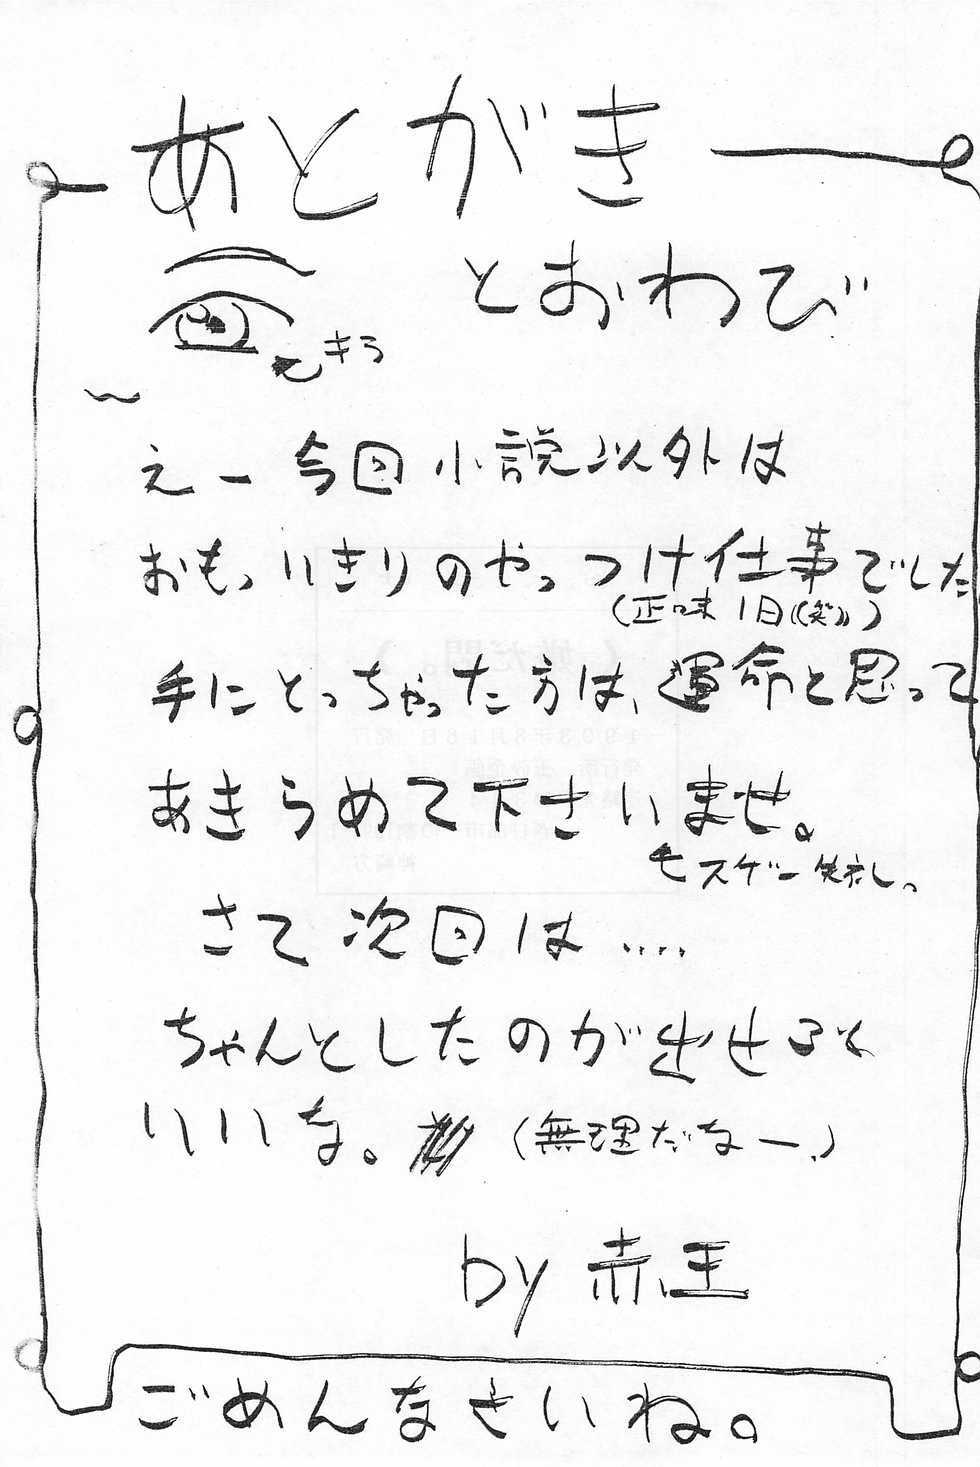 あとがき
とおわび
えー今回小説以外は
おもいっきりのやっつけ仕事でした
(正味1日(笑))
手にとっちゃった方は、運命と思って
あきらめて下さいませ。
さて次回は....
ちゃんとしたのが出せると
いいな。 (無理だなー。)
by 赤王
ごめんなさいね。